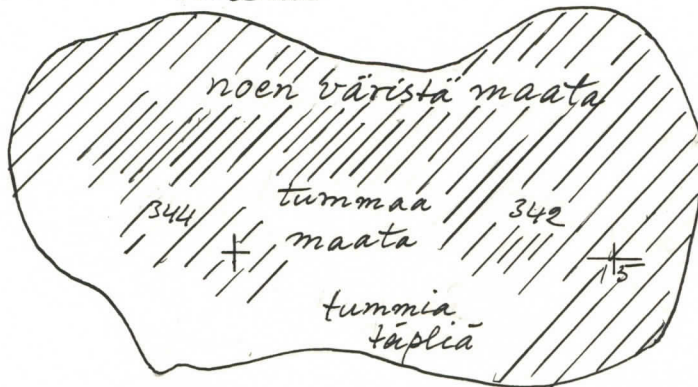 noen väristä maata
344
tummaa
maata
342
15
tummia
täpliä